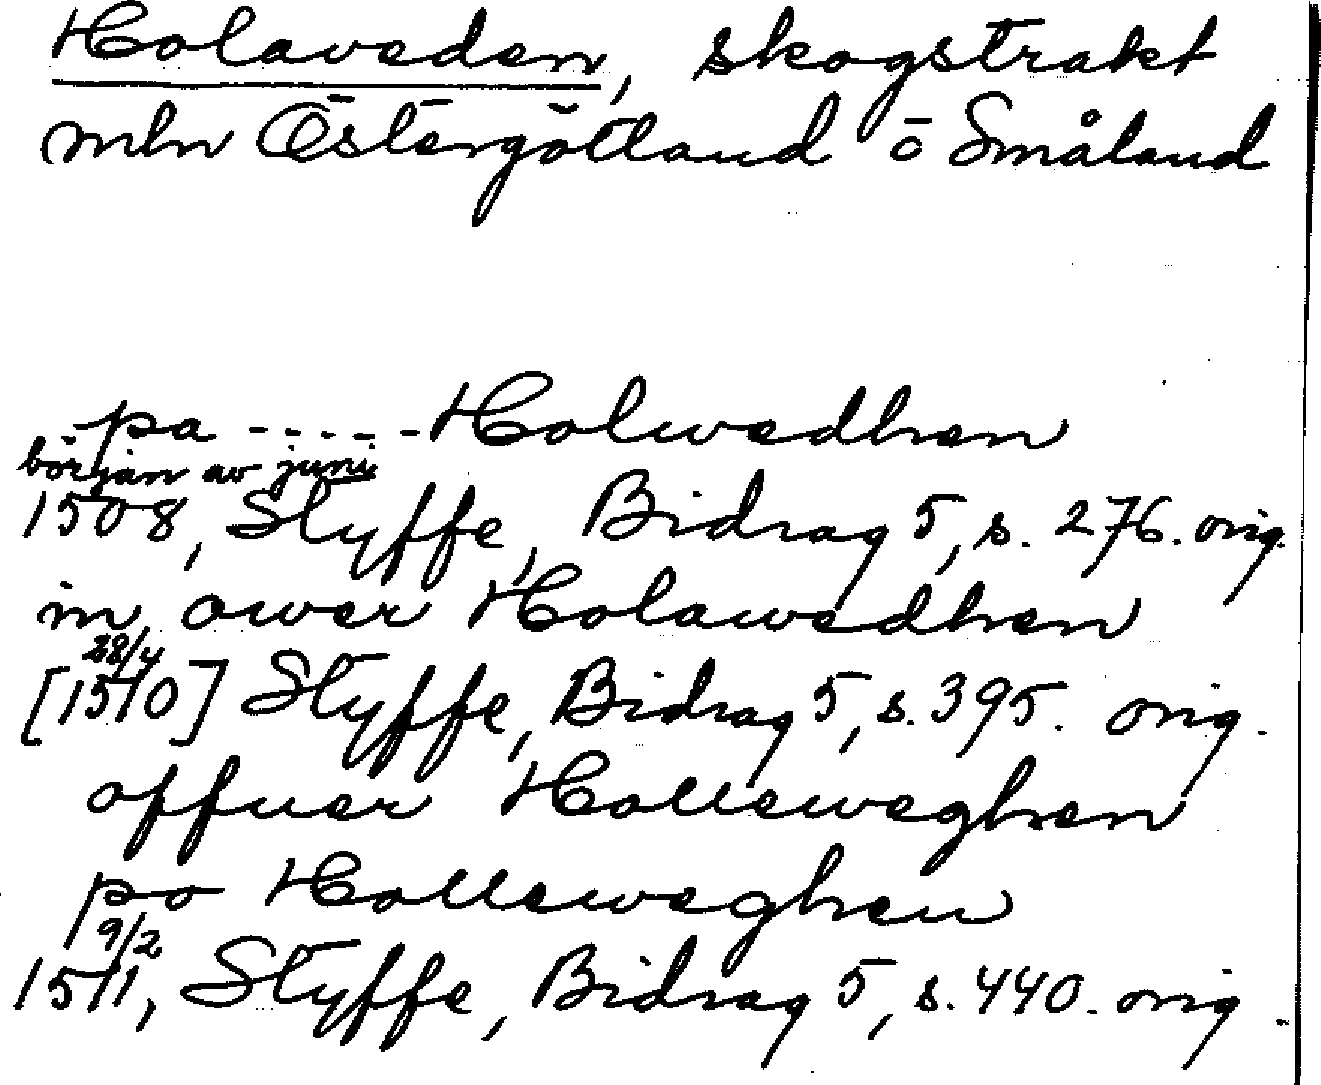 Holaveden, skogstrakt
mln Östergötland o Småland
pa - - - - - Holwedhen
början av juni
1508, Styffe, Bidrag 5, s. 276. orig.
in ower Holawedhen
28/4
[1510] Styffe, Bidrag 5, s. 395. orig.
offuer Holleweghen
po Holleweghen
9/2
1511, Styffe, Bidrag 5, s. 440. orig.